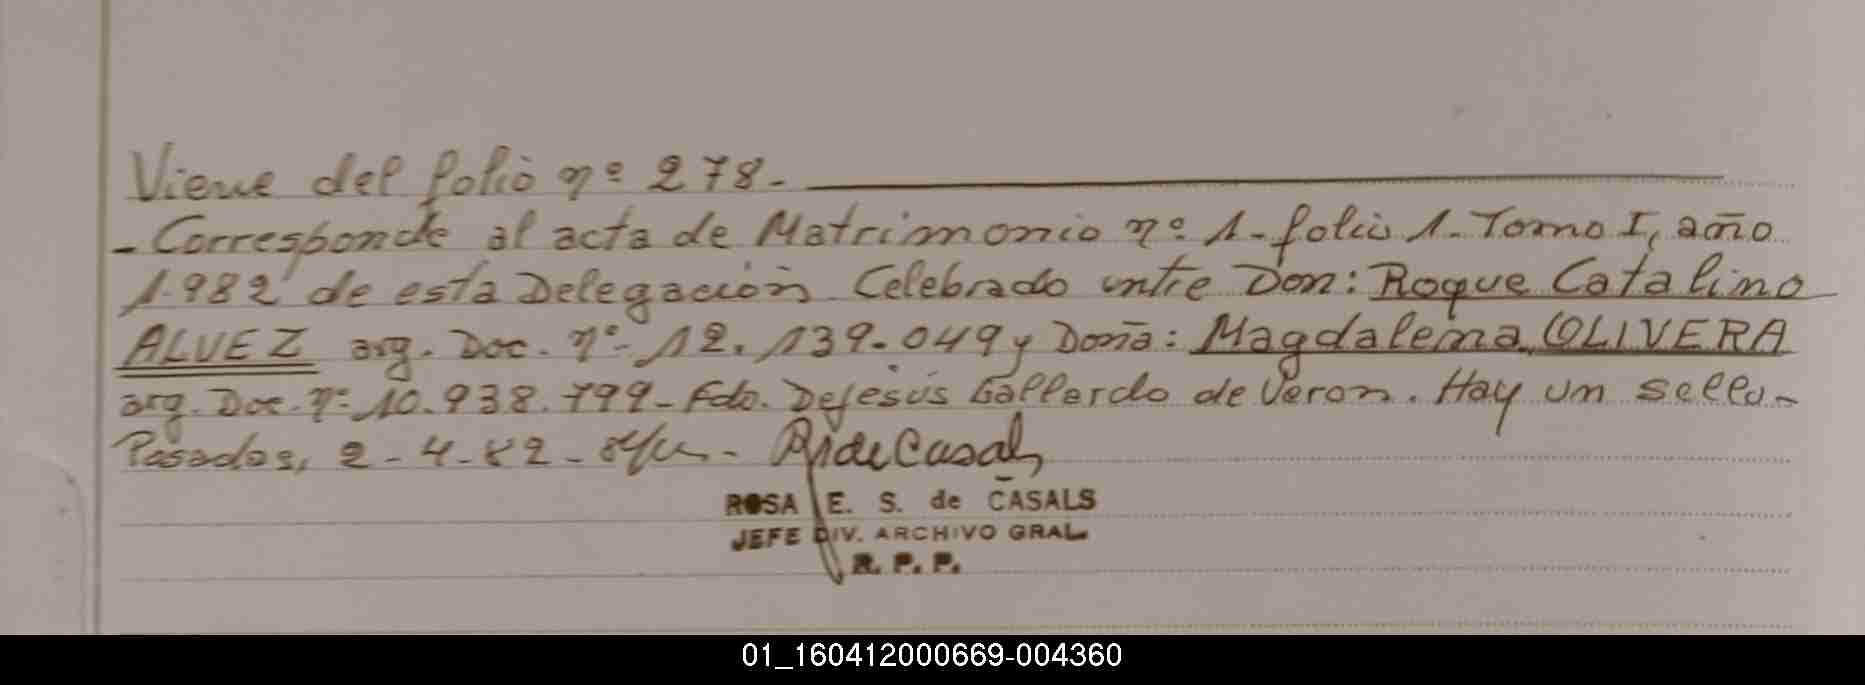 Viene del folio nº 278.-
- Corresponde al acta de Matrimonio nº 1- folio 1.- Tomo I, año
1.982 de esta Delegación. Celebrado entre Don: Roque Catalino
ALVEZ arg. Doc. nº- 12.139.049 y Doña: Magdalena OLIVERA
arg. Doc. nº: 10.938.799- Fdo. DeJesús Gallardo de Veron. Hay un sello-
Posadas, 2-4-82-
ROSA E. S. de CASALS
JEFE DIV. ARCHIVO GRAL
R. P. P.
01_160412000669-004360